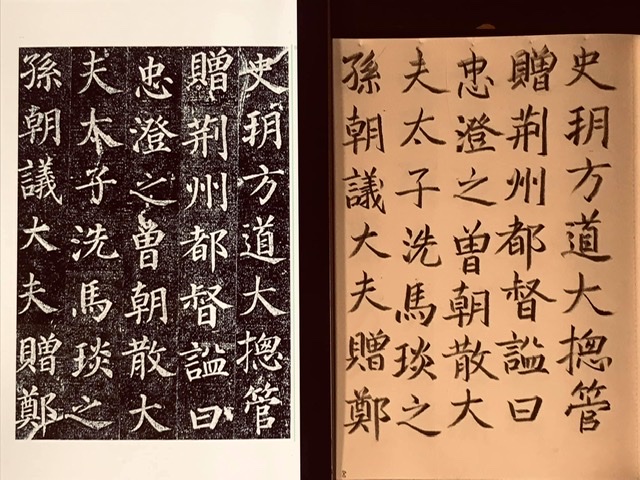 史玥方道大揔管
贈荆州都督謚曰
忠澄之曽朝散大
夫太子洗馬琰之
孫朝議大夫贈鄭
史玥方道大揔管
贈荆州都督謚曰
忠澄之曽朝散大
夫太子洗馬琰之
孫朝議大夫贈鄭